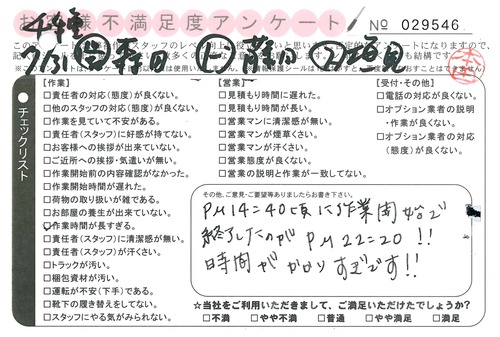 お客様不満足度アンケート
No 029546
千種
7/31
チェックリスト
【作業】
□責任者の対応(態度)が良くない。
□他のスタッフの対応(態度)が良くない。
□作業を見ていて不安がある。
□責任者(スタッフ)に好感が持てない。
□お客様への挨拶が出来ていない。
□ご近所への挨拶・気遣いが無い。
□作業開始前の内容確認がなかった。
□作業開始時間が遅れた。
□荷物の取り扱いが雑である。
□お部屋の養生が出来ていない。
□作業時間が長すぎる。
□責任者(スタッフ)に清潔感が無い。
□責任者(スタッフ)が汗くさい。
□トラックが汚い。
□梱包資材が汚い。
□運転が不安(下手)である。
□靴下の履き替えをしてない。
□スタッフにやる気がみられない。
【営業】
□見積もり時間に遅れた。
□見積もり時間が長い。
□営業マンに清潔感が無い。
□営業マンが煙草くさい。
□営業マンが汗くさい。
□営業態度が良くない。
□営業の説明と作業が一致してない。
【受付・その他】
□電話の対応が良くない。
□オプション業者の説明
・作業が良くない。
□オプション業者の対応
(態度)が良くない。
その他、ご意見・ご要望等ありましたらお書き下さい。
PM14=40頃に作業開始で
終了したのが PM22=20!!
時間がかかりすぎです!!
☆当社をご利用いただきまして、ご満足いただけたでしょうか?
□不満 □やや不満 □普通 □やや満足 □満足